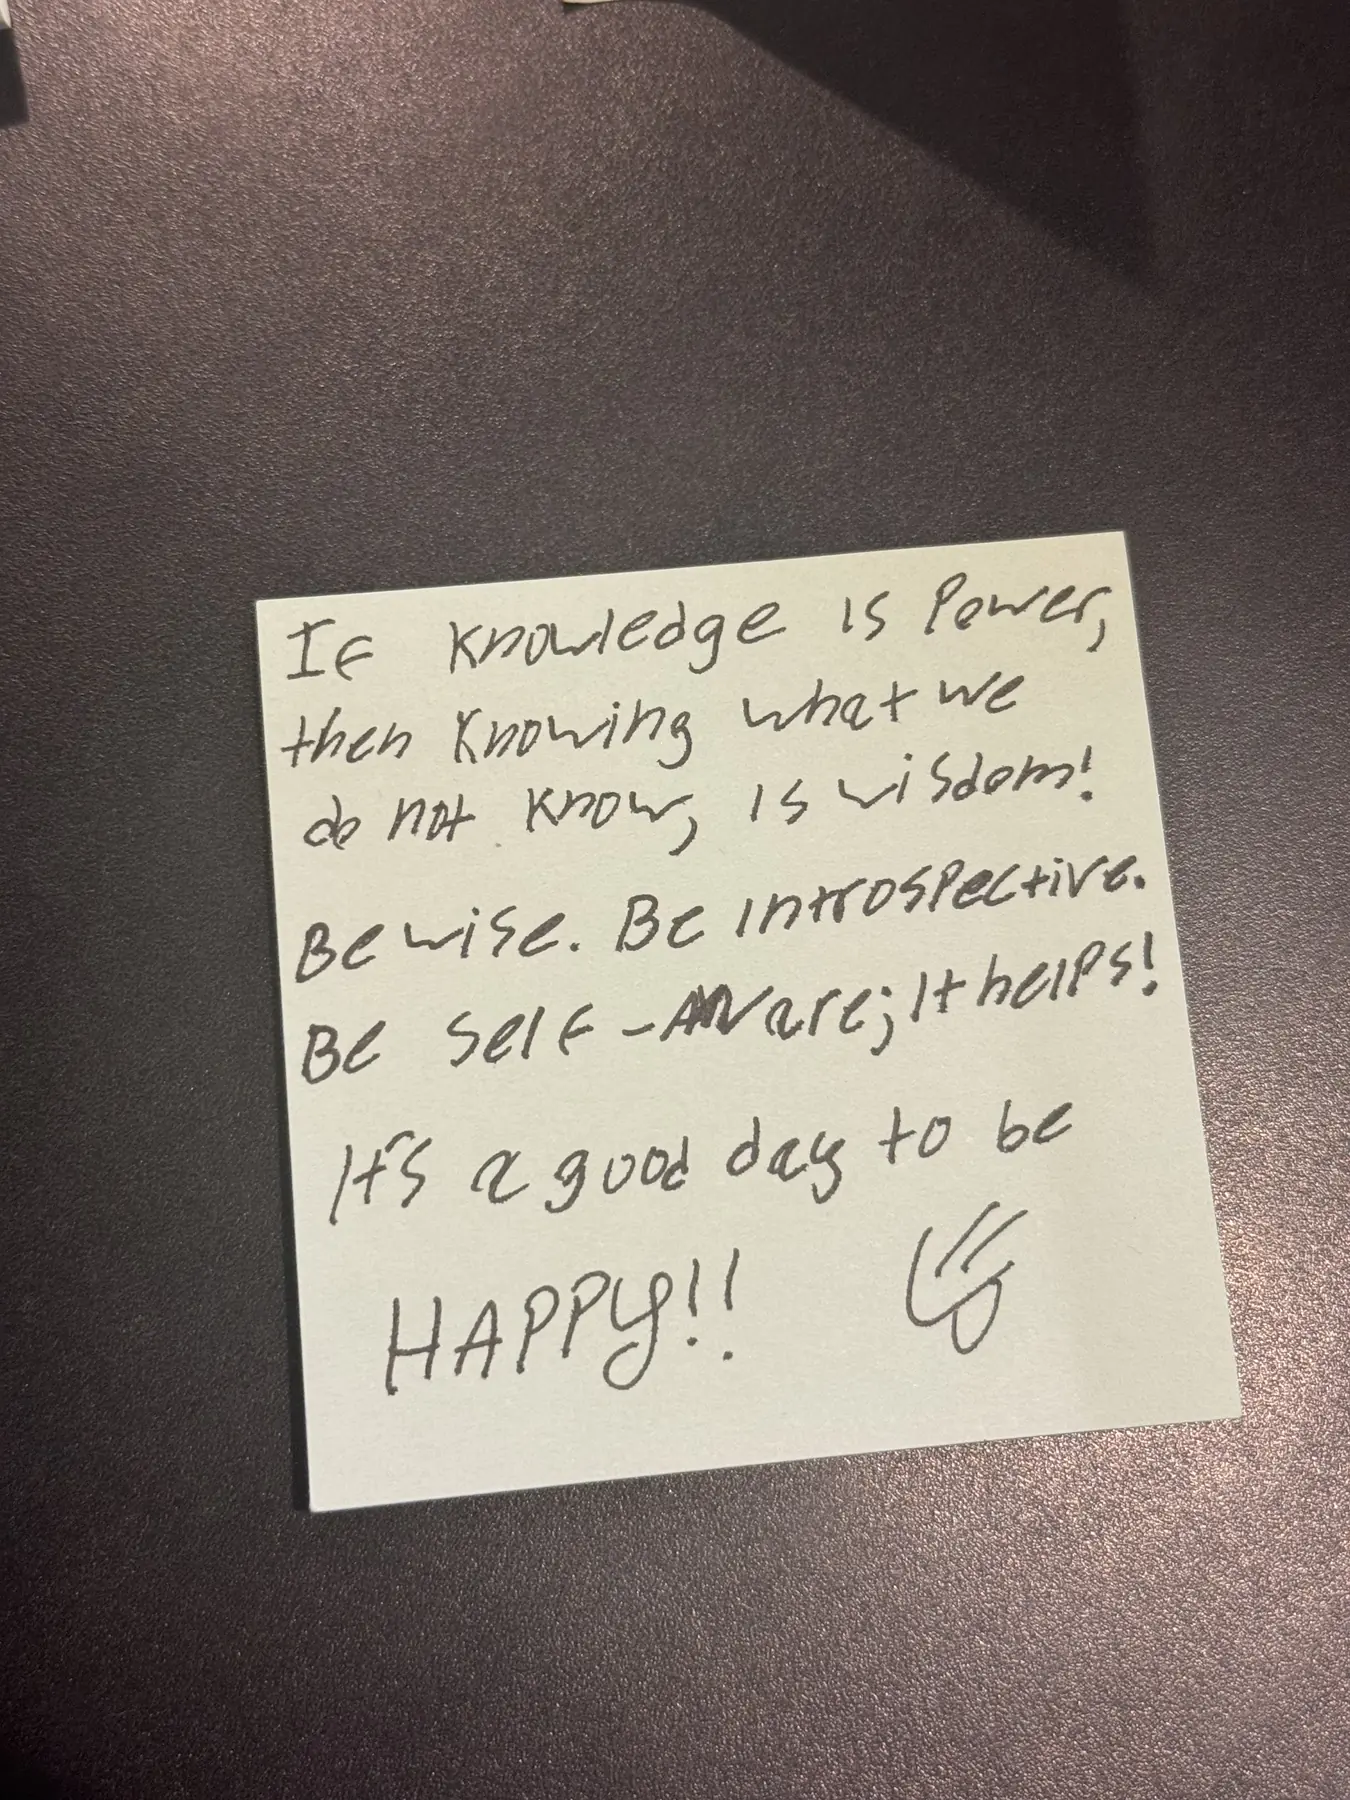 If knowledge is Power,
then knowing what we
do not know, is wisdom!
Be wise. Be introspective.
Be self-Aware; It helps!
It's a good day to be
HAPPY!!